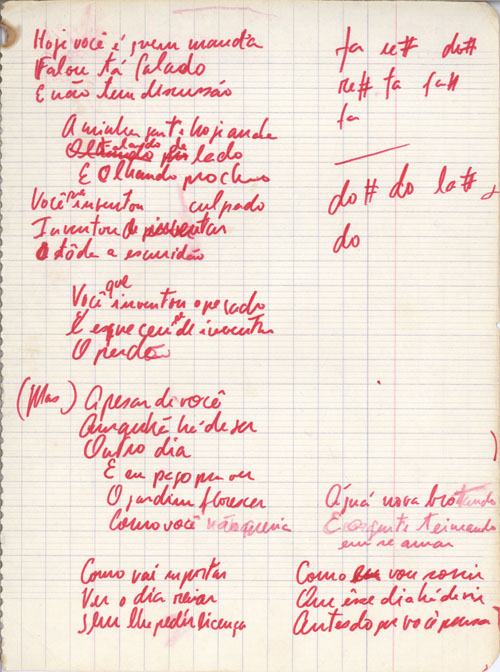 Hoje você é quem manda
Falou tá falado
E não tem discussão
A minha gente hoje anda
falando de lado
E Olhando pro chão
Você que inventou culpado
Inventou de inventar
tôda a escuridão
Você que inventou o pecado
E esqueceu-se de inventar
O perdão
(Mas) Apesar de você
Amanhã há de ser
Outro dia
E eu peço pra ver
O jardim florescer
Como você não queria
Como vai suportar
Ver o dia raiar
sem lhe pedir licença
fa re# do#
re# fa fa#
fa
do# do la#
do
Água nova brotando
E a gente teimando
em se amar
Como vou sorrir
Que êsse dia há de vir
Antes do que você pensa